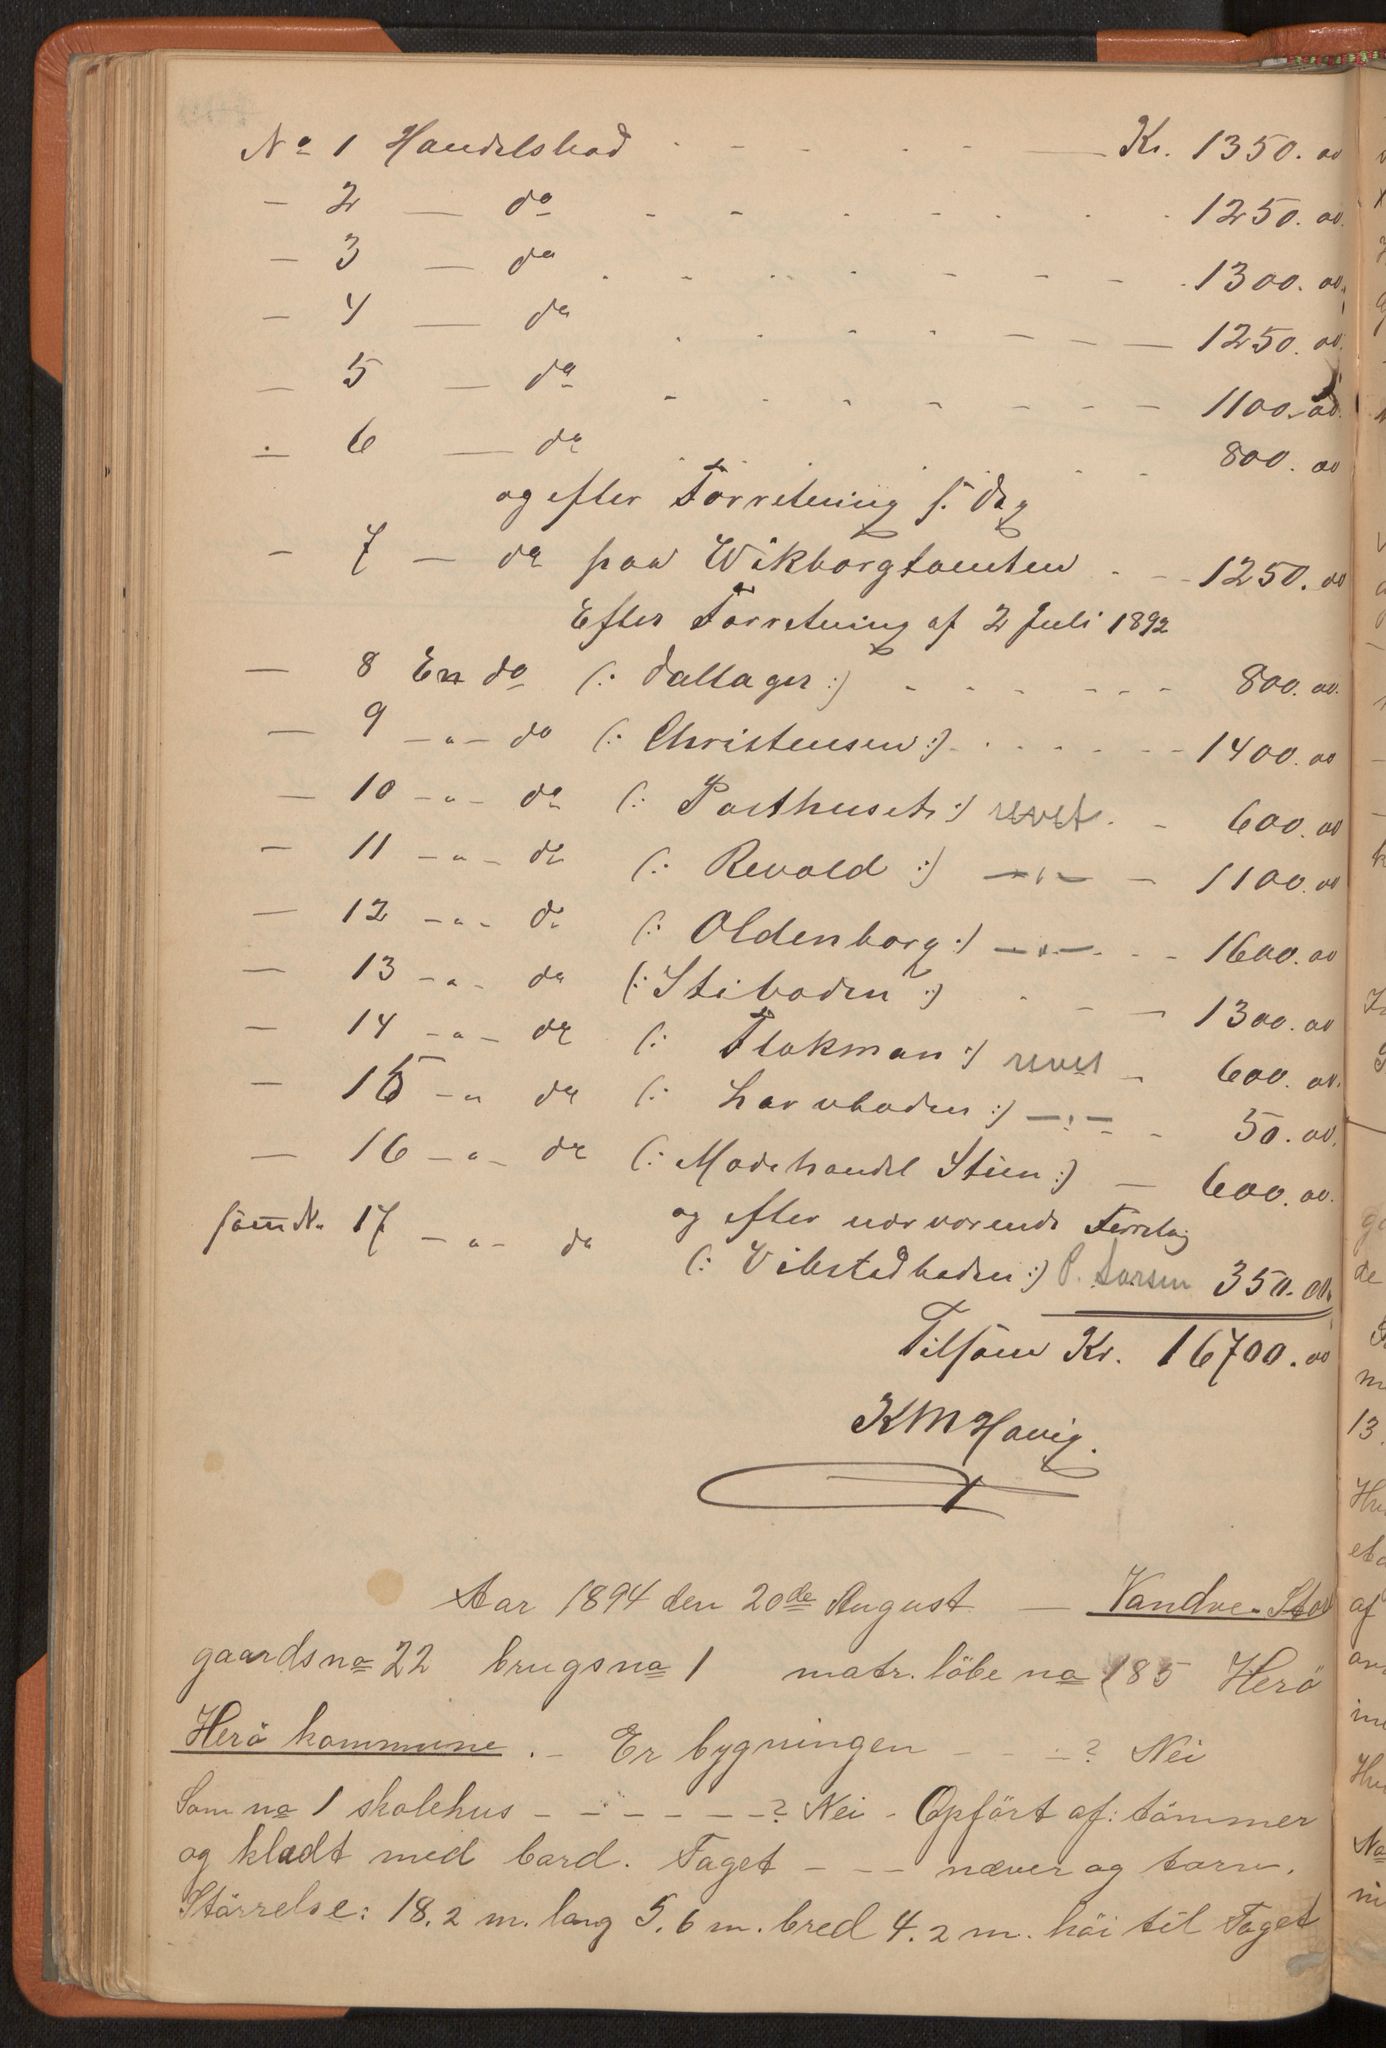 No 1 Handelsbod - - - - - Kr. 1350.00
- 2 - do - - - - - 1250.00
- 3 - do - - - - - 1300.00
- 4 - do - - - - - 1250.00
- 5 - do - - - - - 1100.00
- 6 - do - - - 800.00
og efter Forretning s. dag
- 7 - do paa Wikborgtomten - - 1250.00
Efter Forretning af 2 Juli 1892
- 8 En do (: Dallager :) - - - - - 800.00
- 9 - " - do (: Christensen :) - - - - 1400.00
- 10 - " - do (: Posthuset :) revet - - 600.00
- 11 - " - do (: Revold :) - " - - 1100.00
- 12 - " - do (: Oldenborg :) - " - - - 1600.00
- 13 - " - do (: Stiboden :) - - - 1300.00
- 14 - " - do (: Flokman :) revet - 600.00
- 15 - " - do (: Larvboden :) - " - - 50.00
- 16 - " - do (: Modehandel Stien :) - 600.00
og efter nærværende Forretng
som No 17 - " - do (: Vibstadboden :) P. Larsen 350.00
Tilsam Kr. 16700.00
K M Havig.
Aar 1894 den 20de August - Vandve - Stor
gaardsno 22 brugsno 1 matr. löbe no 185 Herö
Herö kommune. - Er bygningen - - -? Nei
Som no 1 skolehus - - - - - -? Nei - Opfört af: tömmer
og klædt med bord. Taget - - - næver og torv.
Störrelse: 18.2 m. lang 5.6 m. bred 4.2 m. höi til Taget